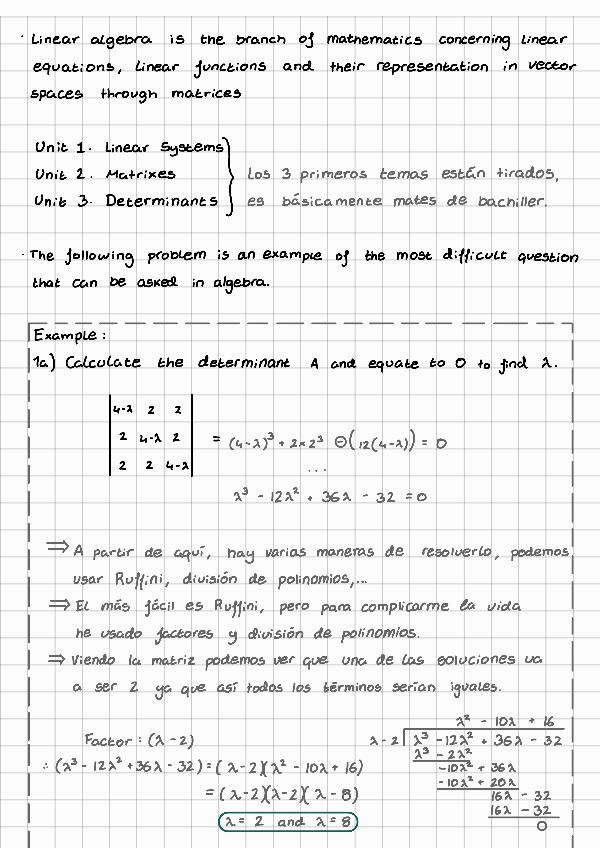 · Linear algebra is the branch of mathematics concerning linear
equations, linear functions and their representation in vector
spaces through matrices
Unit 1. Linear Systems
Unit 2. Matrixes
Unit 3. Determinants
Los 3 primeros temas están tirados,
es básicamente mates de bachiller.
· The following problem is an example of the most difficult question
that can be asked in algebra.
Example:
1a) Calculate the determinant A and equate to 0 to find λ.
4-λ 2 2
2 4-λ 2
2 2 4-λ
= (4-λ)³ + 2×2³ ⊖(12(4-λ)) = 0
...
λ³ - 12λ² + 36λ - 32 = 0
⇒ A partir de aquí, hay varias maneras de resolverlo, podemos
usar Ruffini, división de polinomios,...
⇒ El más fácil es Ruffini, pero para complicarme la vida
he usado factores y división de polinomios.
⇒ Viendo la matriz podemos ver que una de las soluciones va
a ser 2 ya que así todos los términos serían iguales.
Factor: (λ-2)
∴ (λ³ - 12λ² + 36λ - 32) = (λ-2)(λ² - 10λ + 16)
= (λ-2)(λ-2)(λ-8)
λ = 2 and λ = 8
λ² - 10λ + 16
λ-2 λ³ - 12λ² + 36λ - 32
λ³ - 2λ²
-10λ² + 36λ
-10λ² + 20λ
16λ - 32
16λ - 32
0